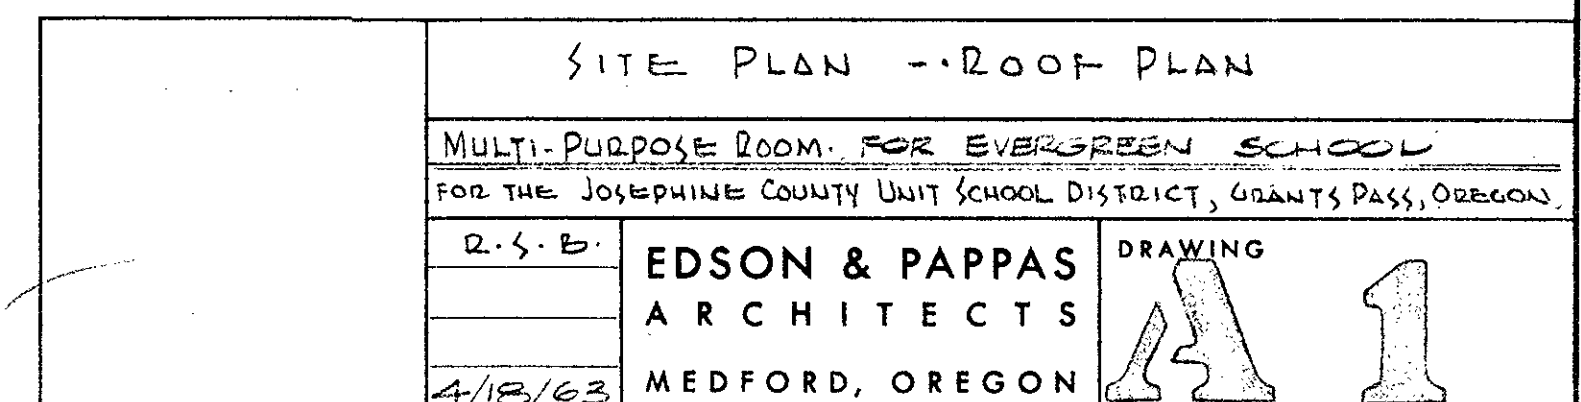 SITE PLAN -. ROOF PLAN
MULTI-PURPOSE ROOM. FOR EVERGREEN SCHOOL
FOR THE JOSEPHINE COUNTY UNIT SCHOOL DISTRICT, GRANTS PASS, OREGON.
R.S.B.
4/18/63
EDSON & PAPPAS
ARCHITECTS
MEDFORD, OREGON
DRAWING
A 1